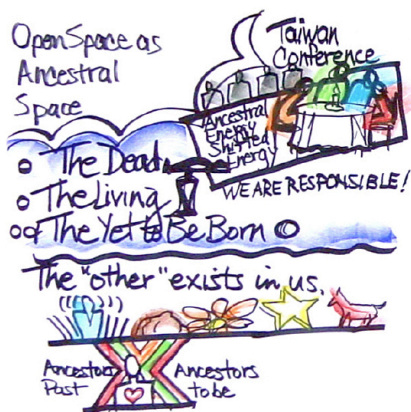 Open Space as
Ancestral
Space
Taiwan
Conference
Ancestral
Energy
Shifted
Energy
WE ARE RESPONSIBLE!
The Dead
The Living
The Yet to Be Born
The "other" exists in us.
Ancestors
Past
Ancestors
to be